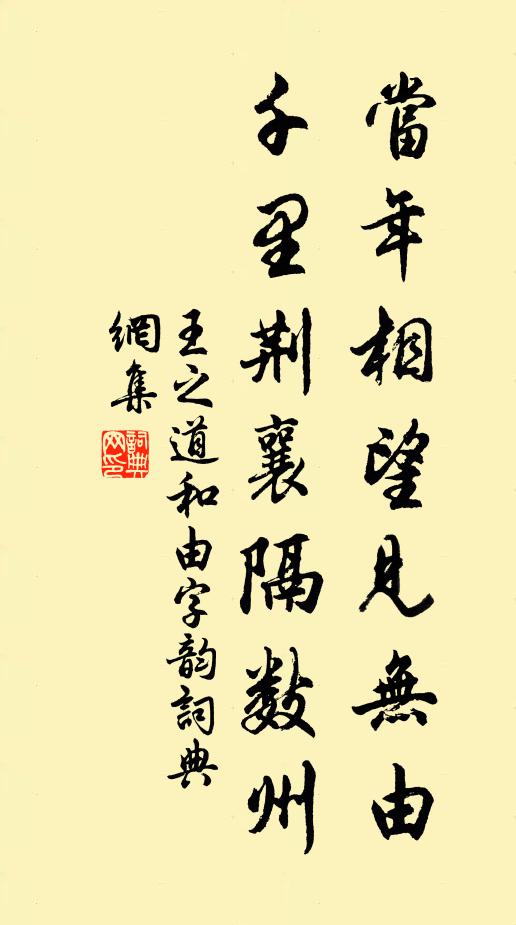 當年相望見無由
千里荆襄隔數州
王之道和由字韵詞典
網集
詞典
网印